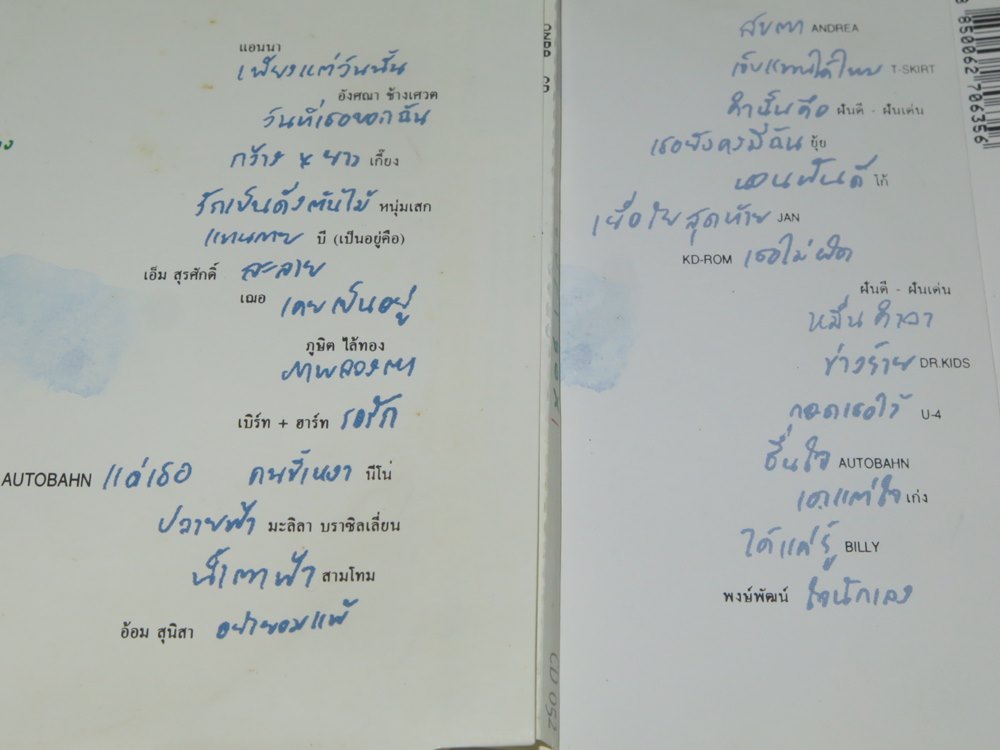 แอนนา
เพียงแต่วันนั้น
อังศณา ช้างเศวต
วันที่เธอบอกฉัน
กว้าง x ยาว เกี๊ยง
รักเป็นดั่งต้นไม้ หนุ่มเสก
แทนกาย บี (เป็นอยู่คือ)
เอ็ม สุรศักดิ์ ละลาย
เฌอ เคยเป็นอยู่
ภูษิต ไล้ทอง
ภาพลวงตา
เบิร์ท + ฮาร์ท รอรัก
AUTOBAHN แด่เธอ คนขี้เหงา นีโน่
ปลายฟ้า มะลิลา บราซิลเลี่ยน
น้ำตาฟ้า สามโทม
อ้อม สุนิสา อย่ายอมแพ้
CD 052
สบตา ANDREA
เจ็บแทนได้ไหม T-SKIRT
คำนั้นคือ ฝันดี - ฝันเด่น
เธอยังคงมีฉัน ยุ้ย
นอนฝันดี โก้
เยื่อใยสุดท้าย JAN
KD-ROM เธอไม่ผิด
ฝันดี - ฝันเด่น
หมื่นคำลา
ข่าวร้าย DR.KIDS
กอดเธอไว้ U-4
ชื่นใจ AUTOBAHN
เอาแต่ใจ เก่ง
ได้แค่รู้ BILLY
พงษ์พัฒน์ ใจนักเลง
8 850062 706356